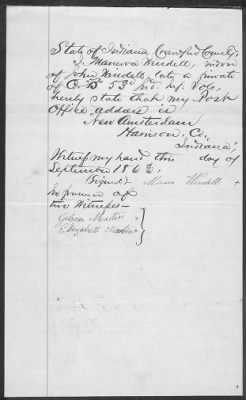 State of Indiana, Crawford County,
I, Manerva Windell, widow
of John Windell late, a private
of Co. B 53d Ind. Inf. Vols,
hereby state that my Post
Office address is
New Amsterdam
Harrison, Co,
Indiana,
Witness my hand this day of
September 1863,
(Signed) Windell
In presence of
two Witnesses—
Gibson Martin
Elizabeth Martin